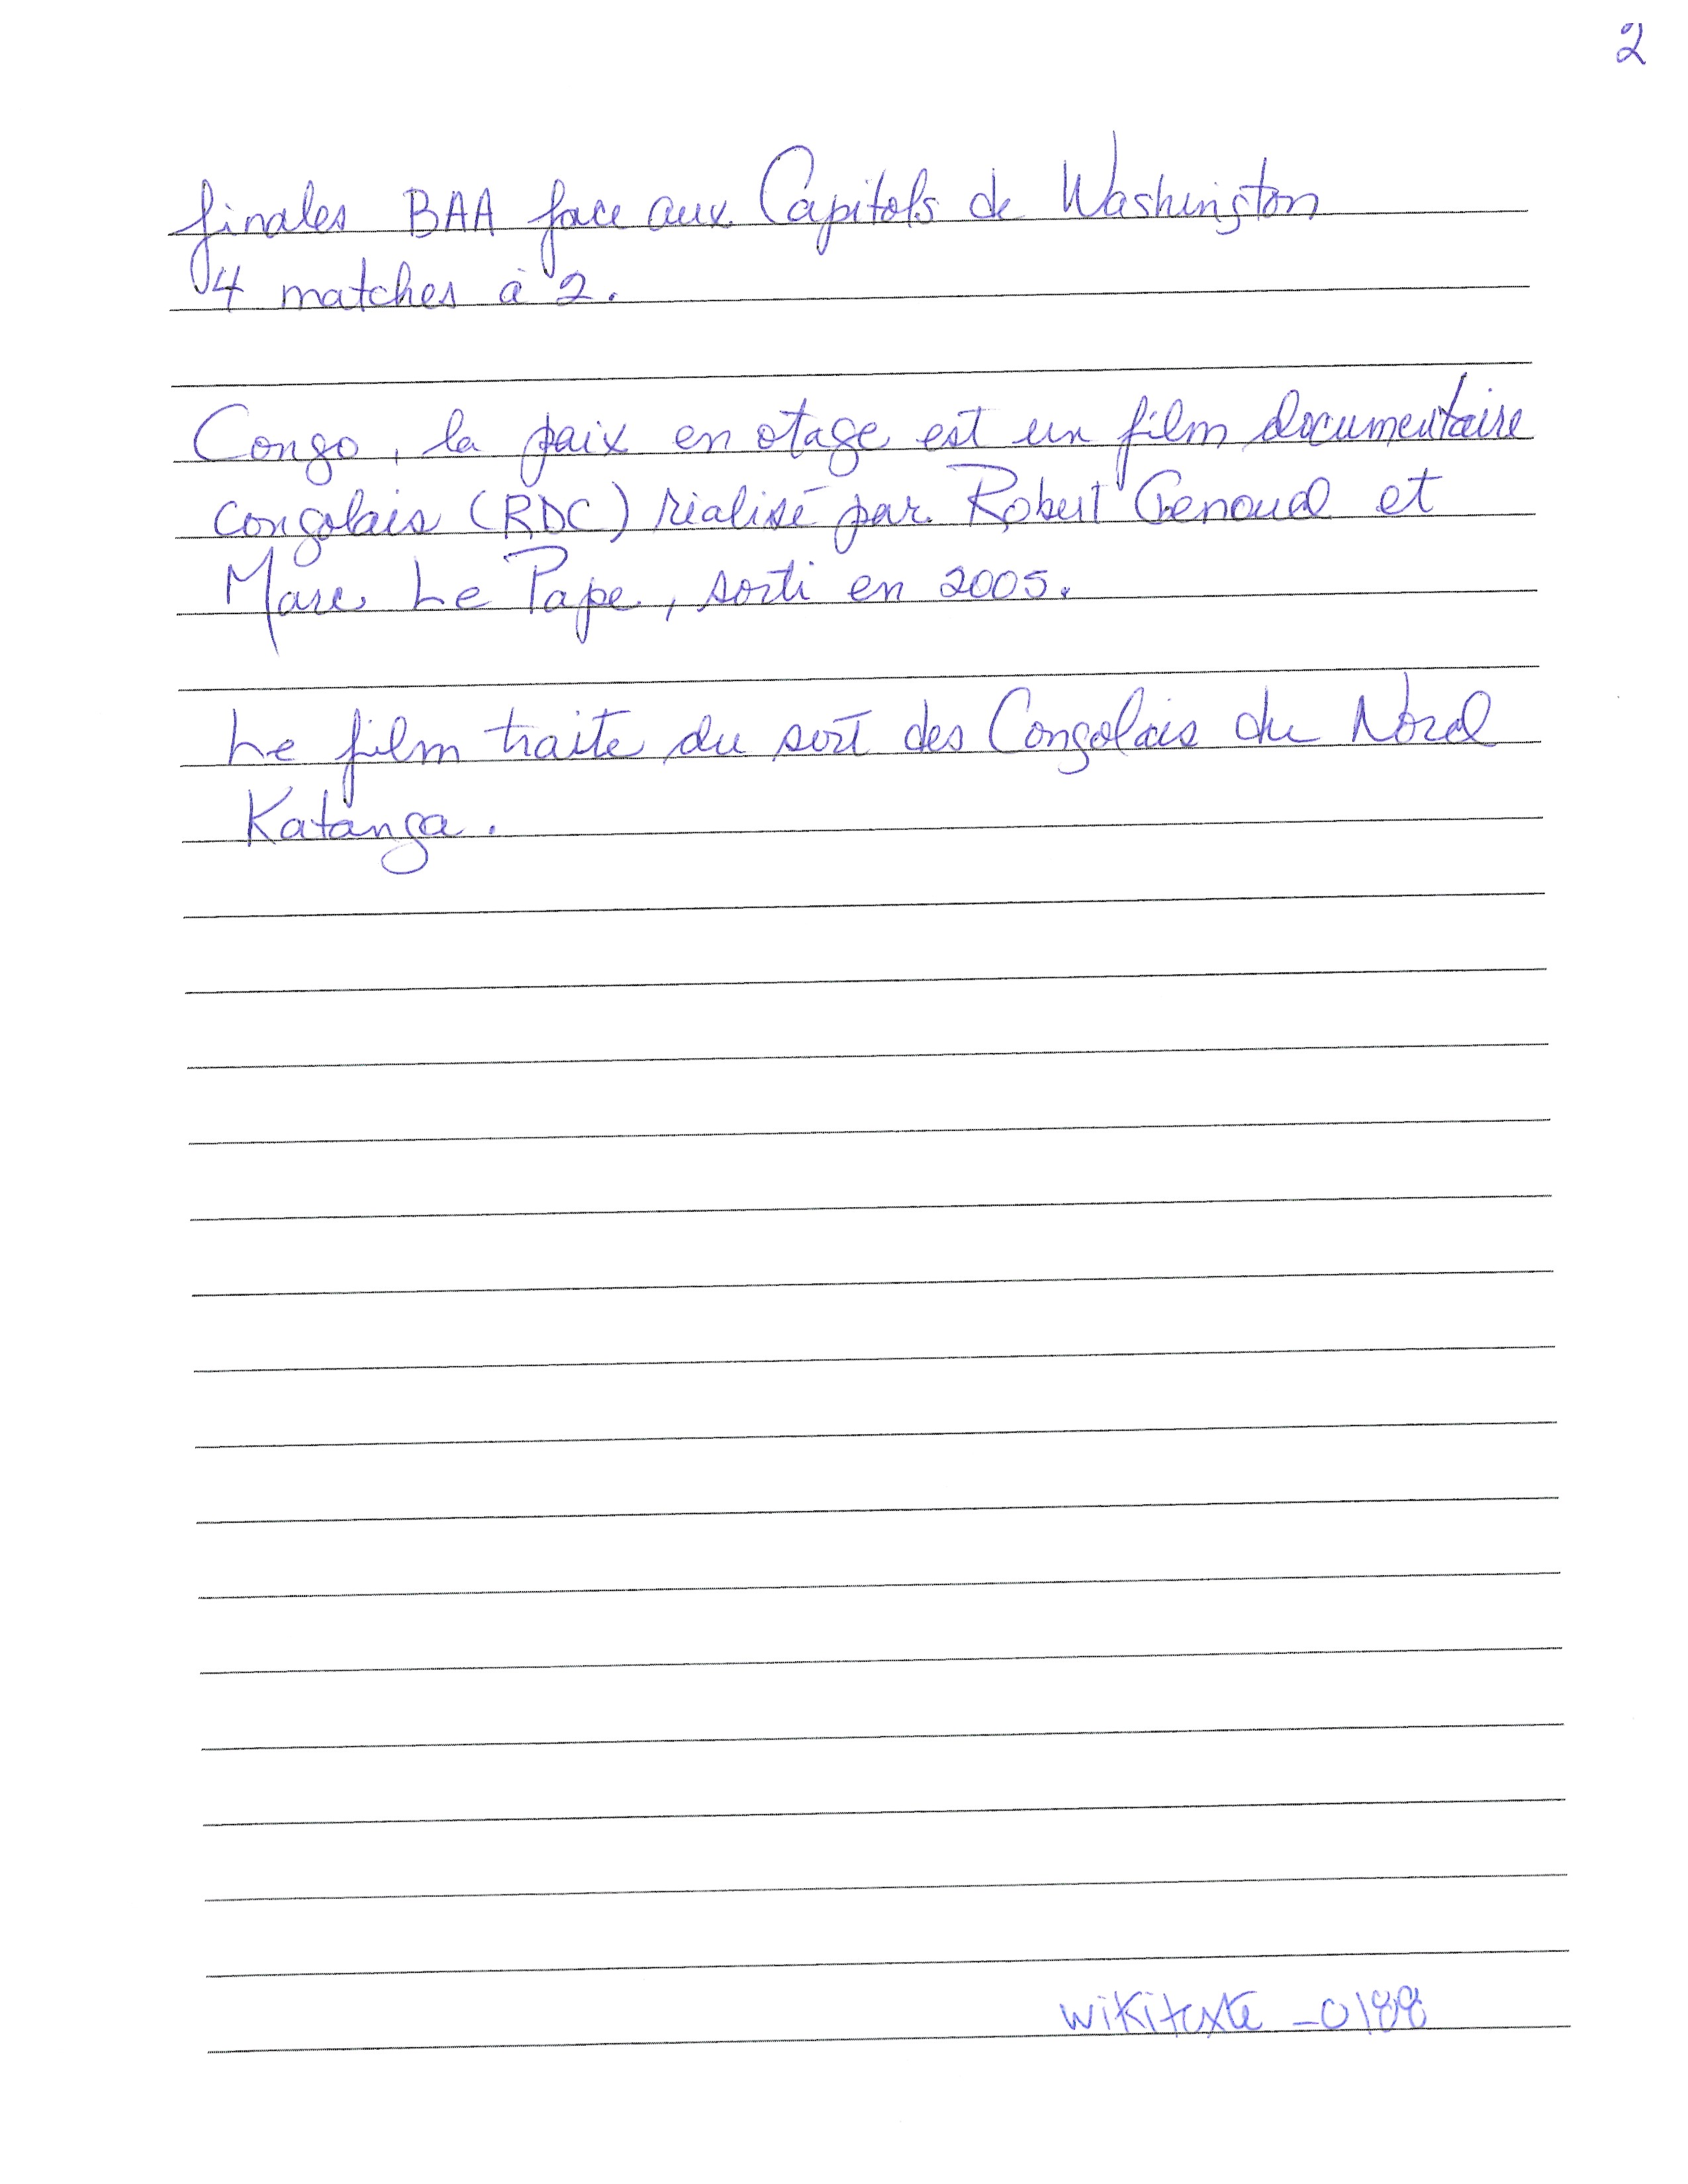 2
finales BAA face aux Capitols de Washington
4 matches à 2.
Congo, la paix en otage est un film documentaire
congolais (RDC) réalisé par Robert Genoud et
Marc Le Pape, sorti en 2005.
Le film traite du sort des Congolais du Nord
Katanga.
wikitexte_0188